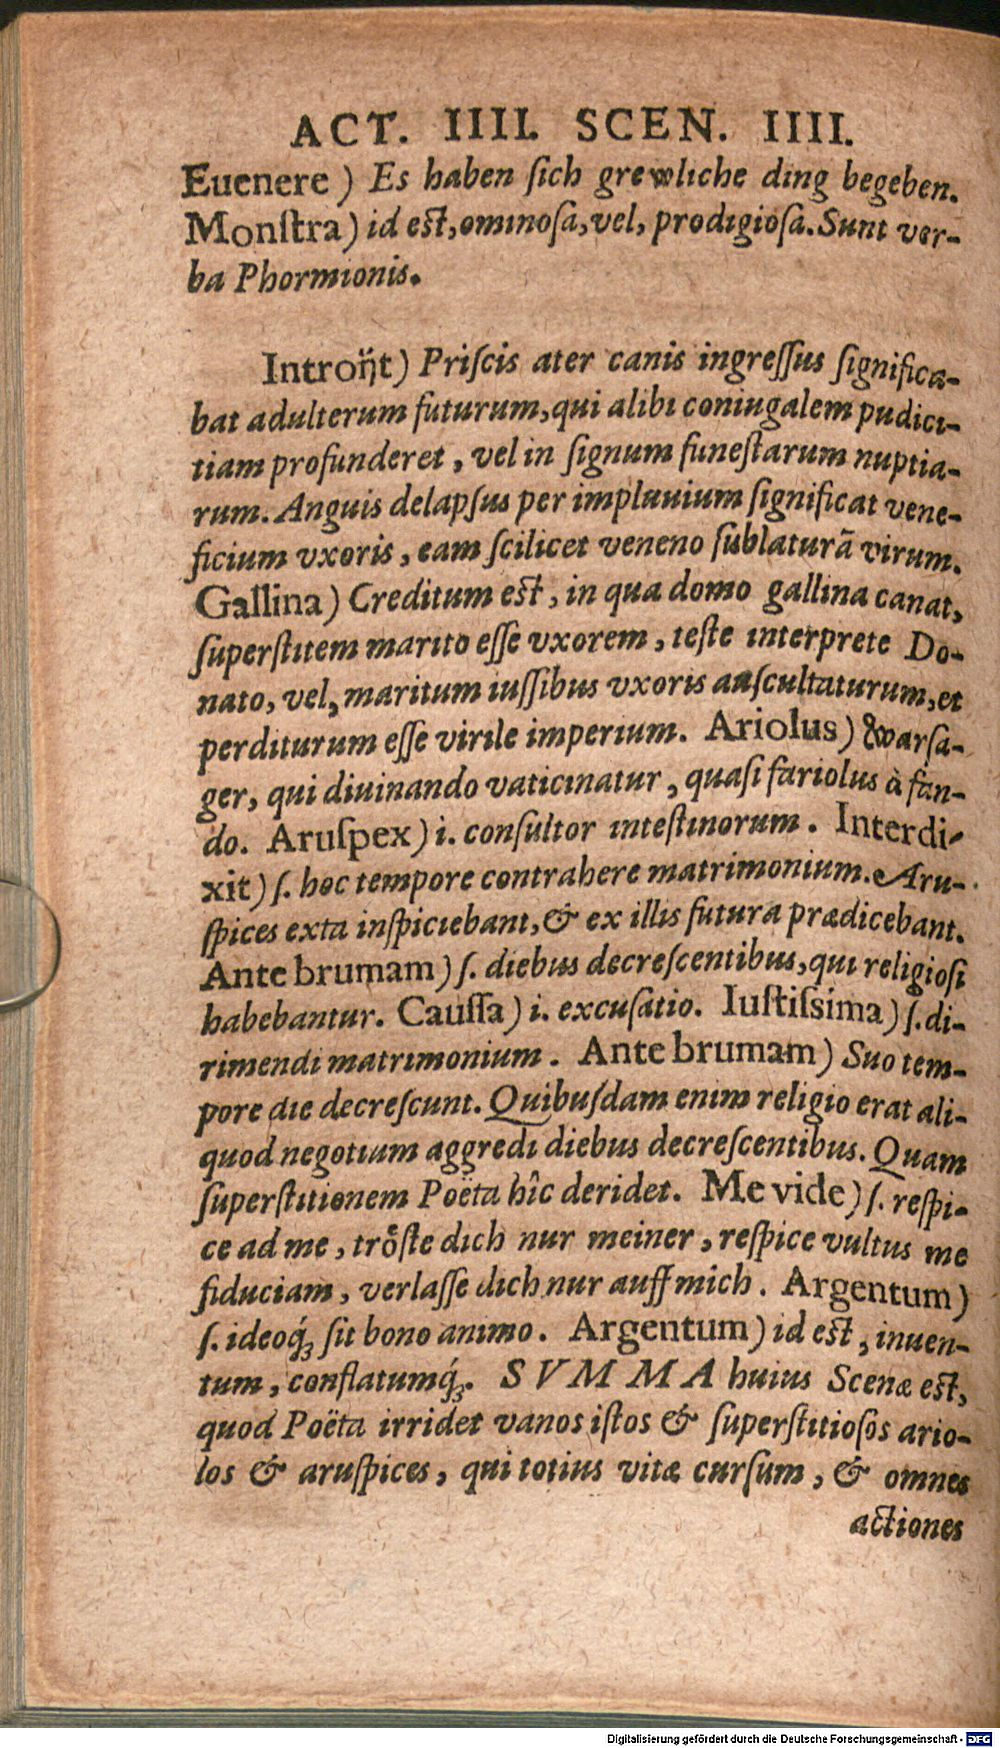 ACT. IIII. SCEN. IIII.
Euenere) Es haben ſich grewliche ding begeben.
Monſtra) id eſt, ominoſa, vel, prodigioſa. Sunt ver-
ba Phormionis.
Introijt) Priſcis ater canis ingreſſus ſignifica-
bat adulterum futurum, qui alibi coniugalem pudici-
tiam profunderet, vel in ſignum funeſtarum nuptia-
rum. Anguis delapſus per impluuium ſignificat vene-
ficium vxoris, eam ſcilicet veneno ſublaturã virum.
Gallina) Creditum eſt, in qua domo gallina canat,
ſuperſtitem marito eſſe vxorem, teſte interprete Do-
nato, vel, maritum iuſſibus vxoris auſcultaturum, et
perditurum eſſe virile imperium. Ariolus) warſa-
ger, qui diuinando vaticinatur, quaſi fariolus à fan-
do. Aruſpex) i. conſultor inteſtinorum. Interdi-
xit) ſ. hoc tempore contrahere matrimonium. Aru-
ſpices exta inſpiciebant, & ex illis futura prædicebant.
Ante brumam) ſ. diebus decreſcentibus, qui religioſi
habebantur. Cauſſa) i. excuſatio. Iuſtiſsima) ſ. di-
rimendi matrimonium. Ante brumam) Suo tem-
pore die decreſcunt. Quibuſdam enim religio erat ali-
quod negotium aggredi diebus decreſcentibus. Quam
ſuperſtitionem Poëta hîc deridet. Me vide) ſ. reſpi-
ce ad me, troͤſte dich nur meiner, reſpice vultus me
fiduciam, verlaſſe dich nur auff mich. Argentum)
ſ. ideoq́ꝫ ſit bono animo. Argentum) id eſt, inuen-
tum, conflatumq́ꝫ. SVMMA huius Scenæ eſt,
quod Poëta irridet vanos iſtos & ſuperſtitioſos ario-
los & aruſpices, qui totius vitæ curſum, & omnes
actiones
Digitalisierung gefördert durch die Deutsche Forschungsgemeinschaft - DFG